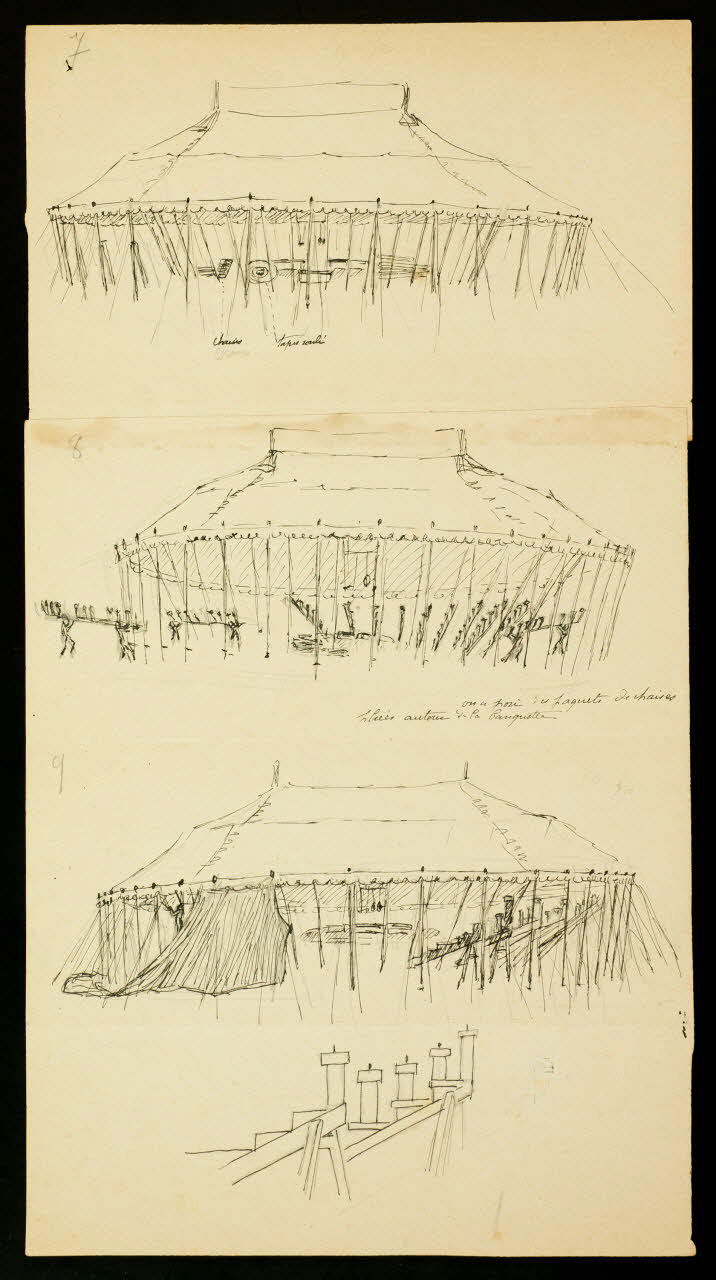 7
chaises tapis roulé
8
on a posé des paquets de chaises
pliées autour de la banquette
9